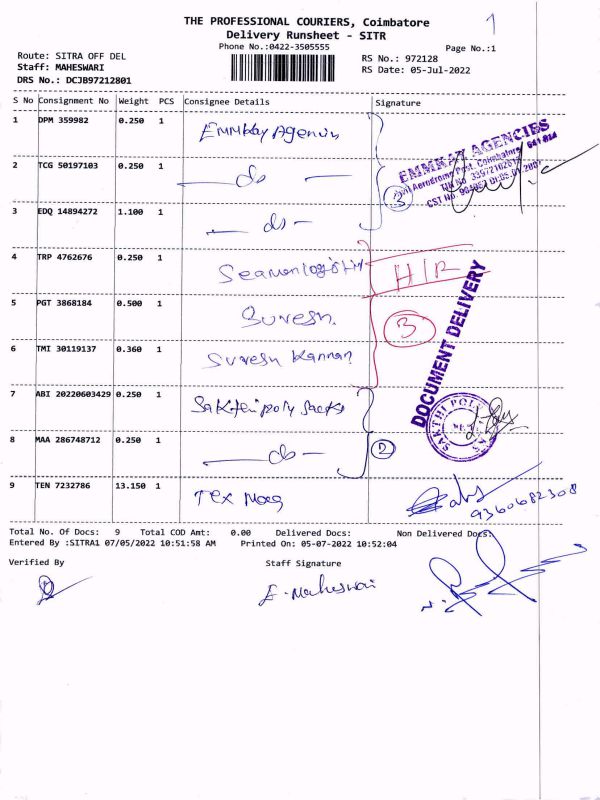 1
THE PROFESSIONAL COURIERS, Coimbatore
Delivery Runsheet - SITR
Phone No.:0422-3505555
Page No.:1
Route: SITRA OFF DEL
Staff: MAHESWARI
DRS No.: DCJB97212801
RS No.: 972128
RS Date: 05-Jul-2022
S No Consignment No Weight PCS Consignee Details Signature
1 DPM 359982 0.250 1 Emmkay Agencies
EMMKAY AGENCIES
2 TCG 50197103 0.250 1 — do —
3
3 EDQ 14894272 1.100 1 — do —
4 TRP 4762676 0.250 1 H/R
5 PGT 3868184 0.500 1 Suresh.
3
DOCUMENT DELIVERY
6 TMI 30119137 0.360 1 Suresh Kannan
7 ABI 20220603429 0.250 1 Sakthi poly sacks
8 MAA 286748712 0.250 1 — do —
2
9 TEN 7232786 13.150 1 Tex
9360682308
Total No. Of Docs: 9 Total COD Amt: 0.00 Delivered Docs: Non Delivered Docs:
Entered By :SITRA1 07/05/2022 10:51:58 AM Printed On: 05-07-2022 10:52:04
Verified By Staff Signature
E. Maheswari